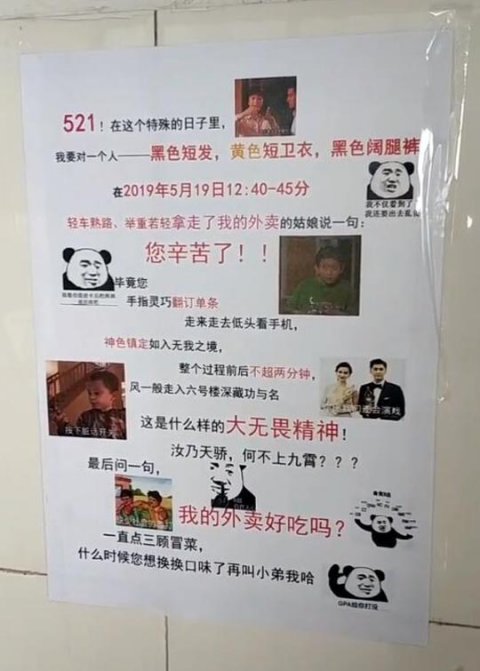 521！在这个特殊的日子里，
我要对一个人——黑色短发，黄色短卫衣，黑色阔腿裤
我不仅看到了
我还要出去乱说
在2019年5月19日12:40-45分
轻车熟路、举重若轻拿走了我的外卖的姑娘说一句：
您辛苦了！！
毕竟您
手指灵巧翻订单条
走来走去低头看手机，
神色镇定如入无我之境，
整个过程前后不超两分钟，
风一般走入六号楼深藏功与名
按下脏话开关
这是什么样的大无畏精神！
汝乃天骄，何不上九霄？？？
最后问一句，
我的外卖好吃吗？
一直点三顾冒菜，
什么时候您想换换口味了再叫小弟我哈
GPA给你打没